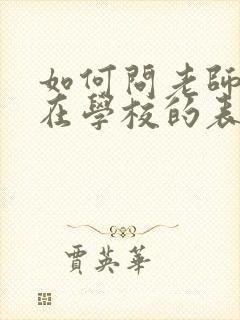 如何問老師
在學校的表
賈英華